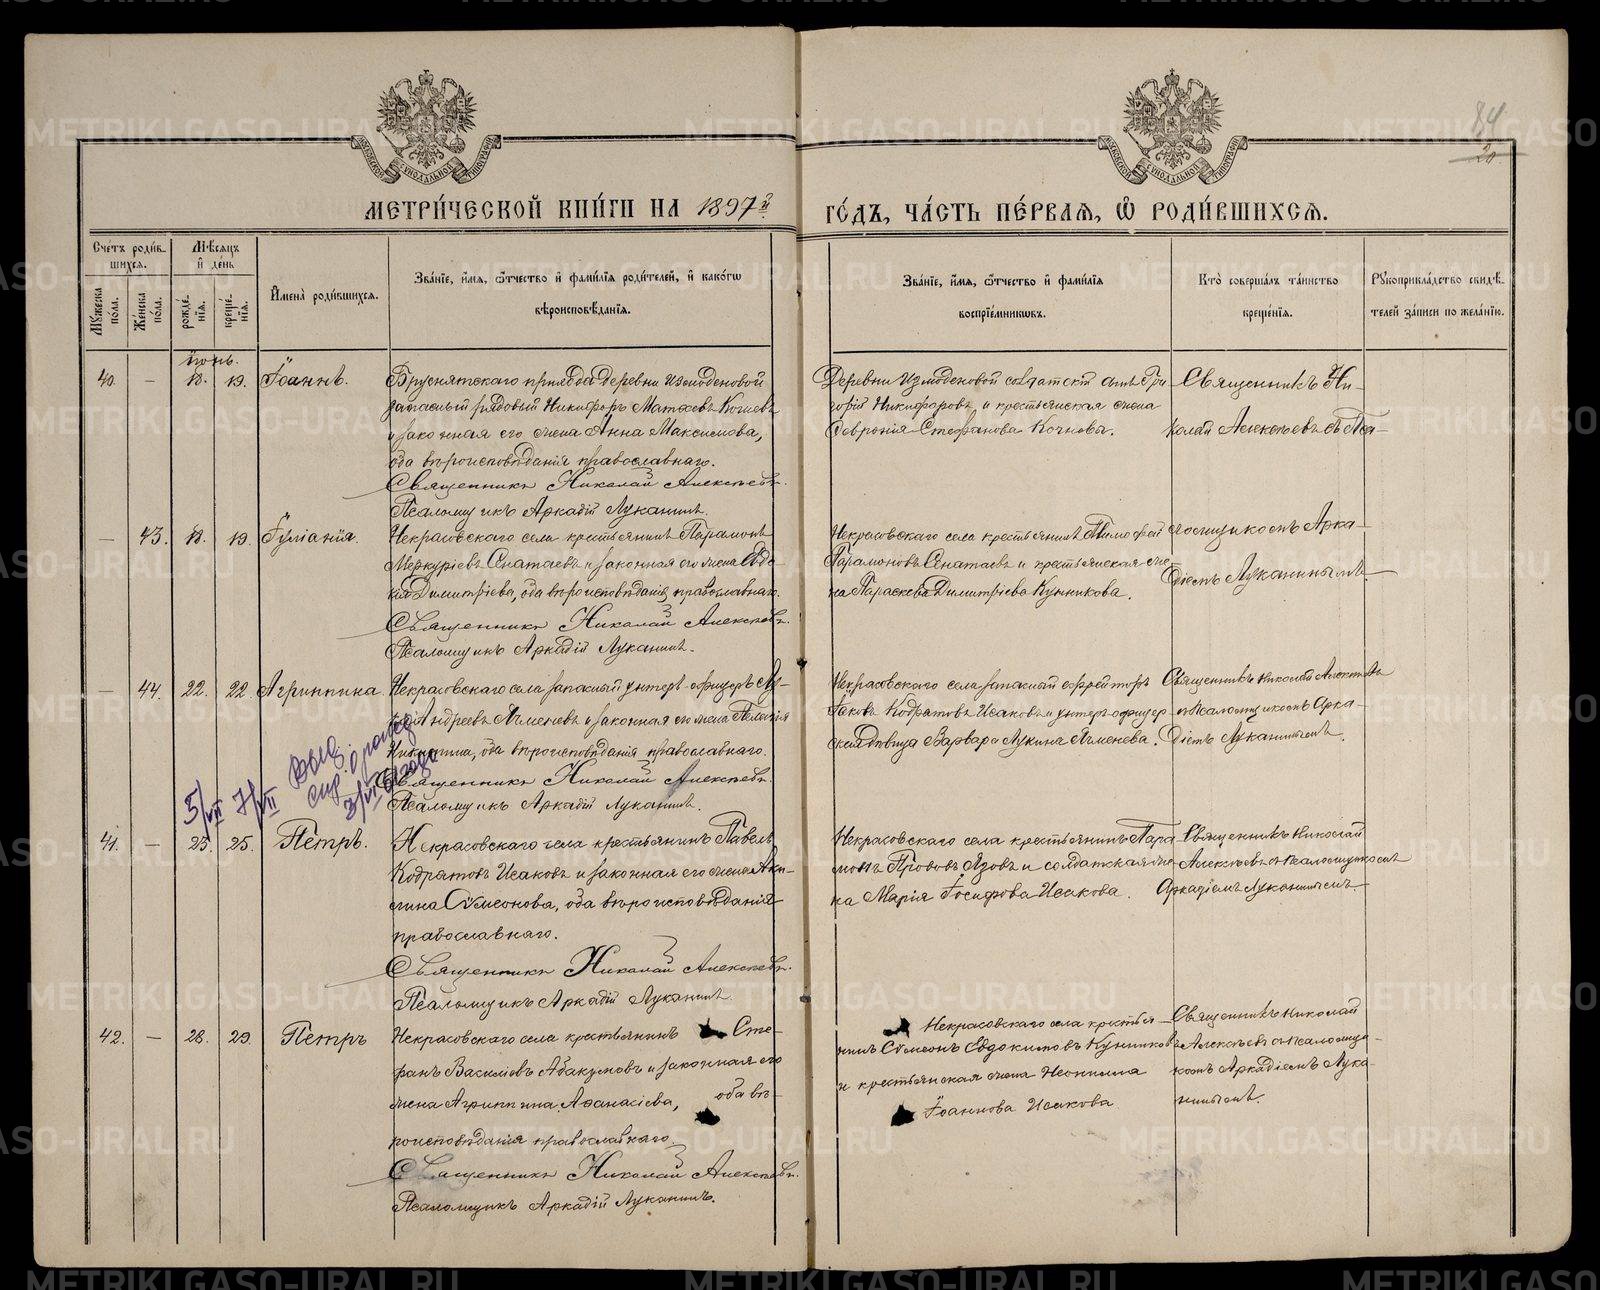 МЕТРИ́ЧЕСКОЙ КНИ́ГИ НА 1897 й
ГО́ДЪ, ЧА́СТЬ ПЕ́РВАѦ, Ѽ РОДИ́ВШИХСѦ.
84
20
Сче́тъ роди́в-
шихся.
Мѣ́сяцъ
и҆ де́нь
И҆мена̀ роди́вшихся.
Зва́нїе, и҆́мя, ѿтчество и҆ фами́лїя роди́телей, и҆ како́гѡ
вѣроисповѣ́данїя.
Зва́нїе, и҆́мя, ѿтчество и҆ фами́лїя
воспрїе́мниковъ.
Кто̀ соверша́лъ та́инство
креще́нїя.
Рꙋкоприкла́дство свидѣ́-
телей за́писи по жела́нїю.
Мꙋ́жеска
по́ла.
Же́нска
по́ла.
рожде́-
нїя.
креще́-
нїя.
Іюнь.
40. — 18. 19. Іоаннъ.
Бруснятскаго прихода деревни Измоденовой
запасный рядовый Никифоръ Матѳеевъ
и законная его жена Анна Максимова,
оба вѣроисповѣданія православнаго.
Священникъ Николай Алексѣевъ.
Псаломщикъ Аркадій Луканинъ.
Деревни Измоденовой солдатскій сынъ Гри
горій Никифоровъ и крестьянская жена
Февронія Стефанова Кочнова.
Священникъ Ни-
колай Алексѣевъ съ Пса-
— 43. 18. 19. Іуліанія.
Некрасовскаго села крестьянинъ Парамонъ
Меркуріевъ и законная его жена Евдо-
кія Димитріева, оба вѣроисповѣданія православнаго.
Священникъ Николай Алексѣевъ.
Псаломщикъ Аркадій Луканинъ.
Некрасовскаго села крестьянинъ Тимофей
Парамоновъ и крестьянская же-
на Параскева Димитріева Кунникова.
ломщикомъ Арка-
діемъ Луканинымъ.
— 44. 22. 22. Агриппина
Некрасовскаго села запасный унтеръ-офицеръ Лу-
Андреевъ Ячменевъ и законная его жена Пелагія
Никитина, оба вѣроисповѣданія православнаго.
Священникъ Николай Алексѣевъ.
Псаломщикъ Аркадій Луканинъ.
Некрасовскаго села запасный ефрейторъ
Іаковъ Кодратовъ Исаковъ и унтеръ-офицер
ская дѣвица Варвара Лукина Ячменева.
Священникъ Николай Алексѣевъ
съ псаломщикомъ Арка-
діемъ Луканинымъ.
5/VII 7/VII
41. — 25. 25. Петръ.
Некрасовскаго села крестьянинъ Павелъ
Кодратовъ Исаковъ и законная его жена Аки-
лина Сѵмеонова, оба вѣроисповѣданія
православнаго.
Священникъ Николай Алексѣевъ.
Псаломщикъ Аркадій Луканинъ.
Некрасовскаго села крестьянинъ Пара
моны Прововъ Язовъ и солдатская же-
на Марія Іосифова Исакова.
Священникъ Николай
Алексѣевъ съ псаломщикомъ
Аркадіемъ Луканинымъ.
42. — 28. 29. Петръ
Некрасовскаго села крестьянинъ Сте-
фанъ Василіевъ Абакумовъ и законная его
жена Агриппина Аѳанасіева, оба вѣ-
роисповѣданія православнаго.
Священникъ Николай Алексѣевъ.
Псаломщикъ Аркадій Луканинъ.
Некрасовскаго села крестья-
нинъ Сѵмеонъ Евдокимовъ Кунников
и крестьянская жена Неонилла
Іоаннова Исакова
Священникъ Николай
Алексѣевъ съ псаломщи-
комъ Аркадіемъ Лука-
нинымъ.
METRIKI.GASO-URAL.RU